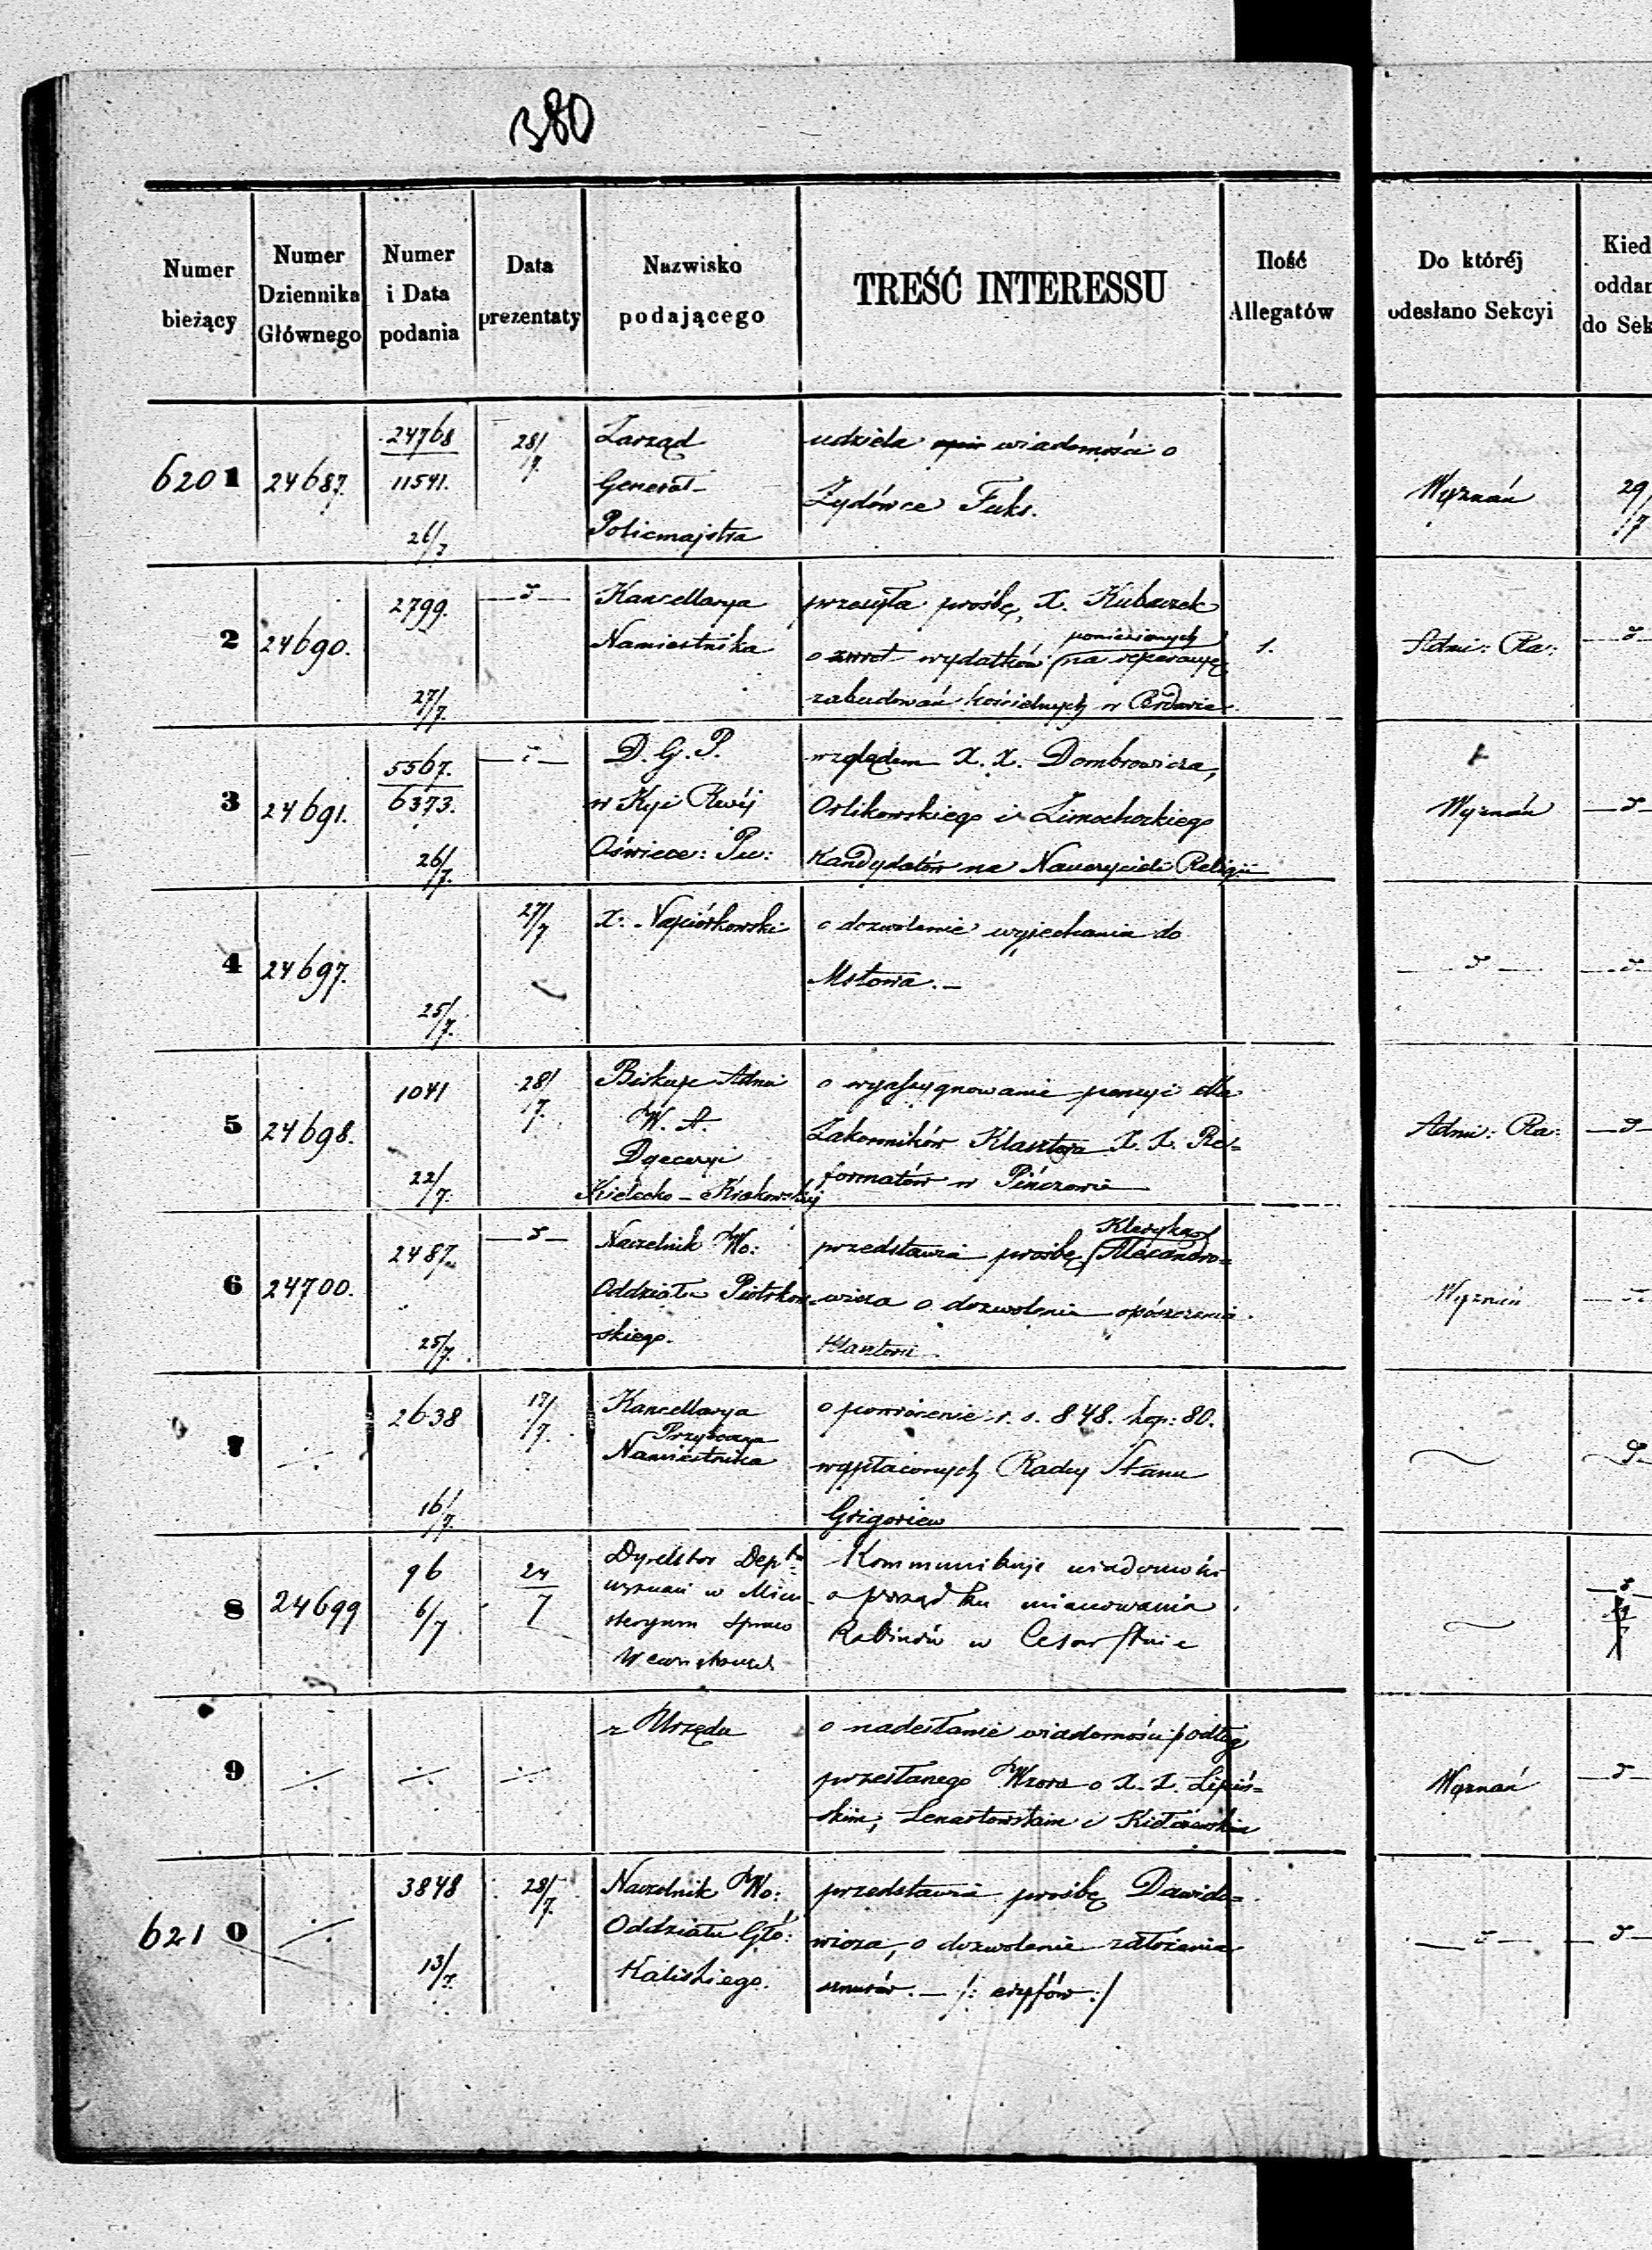 380
Numer bieżący
Numer Dziennika Głównego
Numer i Data podania
Data prezentaty
Nazwisko podającego
TREŚĆ INTERESSU
Ilość Allegatów
Do któréj odesłano Sekcyi
Kied
oddan
do Sek
6201
24687.
24768
11541.
26/7
28/7.
Zarząd
Generał-
Policmajstra
udziela wiadomości o
Żydówce Fuks.
Wyznań
29/
17
2
24690.
2799.
27/7.
Kancellarya
Namiestnika
przesyła prośbę, X. Kubaczek
poniesionych
o zwrot wydatków na reperacyę
zabudowań kościelnych w
1.
Admi: Ra:
3
24691.
5567.
6373.
26/7.
D. G. P.
w Kyi Rwéj
Oświece: Pu:
względem X. X. Dombrowicza,
Orlikowskiego i Limochockiego
Kandydatów na Nauczycieli Religii
Wyznań
4
24697.
25/7.
27/7
X. Napiórkowski
o dozwolenie wyjechania do
Mstowa.-
5
24698.
1041
22/7.
28/7.
Biskup Admi
W. A.
Dyecezyi
Kielecko-Krakowskiej
o wyassygnowanie pensyi dla
Zakonników Klasztoru X. X. Re-
formatów w Pińczowie
Admi: Ra:
6
24700.
2487.
25/7.
Naczelnik Wo:
Oddziału Piotrkow-
skiego.
Kleryka
przedstawia prośbę Alexandro-
wicza o dozwolenie opószczenia
Klasztoru.
Wyznań
7
2638
16/7.
17/7.
Kancellarya
Przyboczna
Namiestnika
o powrócenie r. s. 848. kop: 80.
wypłaconych Radcy Stanu
Grigoriew
8
24699
96
6/7
24/7
Dyrektor Dep
wyznań w Mini
steryum Spraw
Wewnętrznych
Kommunikuje wiadomość
o porządku mianowania
Rabinów w Cesarstwie
9
z Urzędu
o nadesłanie wiadomości podług
przesłanego Wzoru o X. X. Lipiń-
skim, Lenartowskim i
Wyznań
6210
3848
13/7.
28/7.
Naczelnik Wo:
Oddziału Głó:
Kaliskiego.
przedstawia prośbę Dawido-
wicza, o dozwolenie założenia
sznurów.- /: eryfów :/